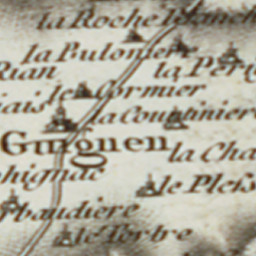 la Roche Blanche
la Buloniere
Rian
la Per
ais
le Cormier
la Countiniere
Guignen
la Cha
phignac
le Pless
rbaudiere
le Tertre